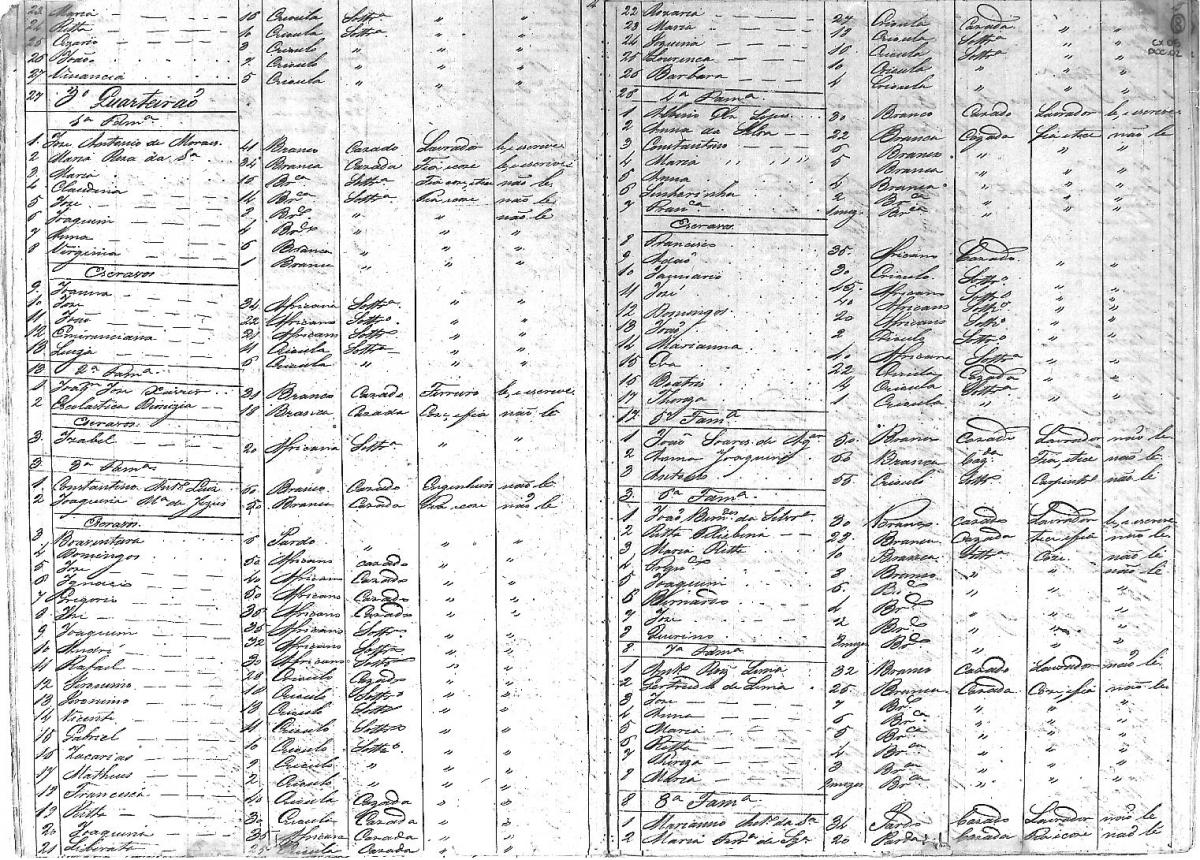 23 Maria 16 Crioula Soltra " "
24 Ritta 6 Crioula Soltra " "
25 3 Crioulo " "
26 João 2 Crioulo " "
27 5 Crioula " "
27 3º Quarteirão
1ª Famª
1 Joze Antonio de Moraes 41 Branco Cazado Lavrador le, e escreve
2 Maria Roza da Sª 34 Branca Cazada Fia, coze le, e escreve
3 Maria 16 Brca Soltra não le
4 Claudina 14 Brca Soltra Fia, coze não le
5 Joze 2 Brco " não le
6 Joaquim 4 Brco " "
7 Anna 6 Branca " "
8 Virginia 1 Branca " "
Escravos
9 Joanna 34 Africana Soltra " "
10 Joze 22 Africano Soltro " "
11 João 21 Africano Soltro " "
12 41 Crioula Soltra " "
13 Luiza 6 Crioula " "
13 2ª Famª
1 Joaqm Joze Xavier 31 Branco Cazado Ferreiro le, e escreve
2 Escolastica 18 Branca Cazada Coze, e fia não le
Escravos
3 Izabel 20 Africana Soltra " "
3 3ª Famª
1 Constantino Antº Luiz Branco Cazado Engenheiro não le
2 Joaquina Mª de Jezus 50 Branca Cazada Fia, coze não le
Escravos
3 Boaventura 6 Pardo " "
4 Domingos 50 Africano Cazado " "
5 Joze 40 Africano Cazado " "
6 Ignacio 50 Africano Cazado " "
7 Gregorio 36 Africano Cazado " "
8 Joze 36 Africano Soltro " "
9 Joaquim 32 Africano Soltro " "
10 André 30 Africano Soltro " "
11 Rafael 28 Crioulo Cazado " "
12 18 Crioulo Soltro " "
13 Jeronimo 13 Crioulo Soltro " "
14 Vicente 11 Crioulo Soltro " "
15 Gabriel 10 Crioulo Soltro " "
16 Zacarias 2 Crioulo " "
17 Matheus 2 Crioulo " "
18 Francisca 40 Crioula Cazada " "
19 Ritta 30 Crioula Cazada " "
20 Joaquina Africana Cazada " "
21 Liberata Crioula Cazada " "
8
CX 05
DOC. 02
22 Rozaria 27 Crioula Cazada " "
23 Maria 12 Crioula Soltra " "
24 Joquina 16 Crioula Soltra " "
25 Lourença 10 Crioula " "
26 Barbara 4 Crioula " "
26 4ª Famª
1 Lopes 30 Branco Cazado Lavrador le, e escreve
2 Anna da Silva 22 Branca Cazada não le
3 Constantino 6 Branco " " "
4 Maria 5 Branca " " "
5 Anna 4 Branca " " "
6 Senharinha 2 Brca " " "
7 Franca Brca " " "
Escravos
8 Francisco 35 Africano Cazado " "
9 30 Crioulo Soltro " "
10 Januario 45 Africano Soltro " "
11 José 40 Africano Soltro " "
12 Domingos 20 Africano Soltro " "
13 João 2 Crioulo Soltro " "
14 Marianna 40 Africana Soltra " "
15 Eva 22 Crioula Cazada " "
16 Beatris 14 Crioula Soltra " "
17 Thereza 1 Crioula " "
17 5ª Famª
1 João Soares de 50 Branco Cazado Lavrador não le
2 Anna Joaquina Branca Cazda Fia, e tece não le
3 Antonio 55 Crioulo Soltro Carpintrº não le
3 6ª Famª
1 João da Silva 30 Branco Cazado Lavrador le, e escreve
2 Ritta 22 Branca Cazada Tece, e fia não le
3 Maria Ritta 10 Branca Soltra Coze não le
4 8 Branco " " não le
5 Joaquim 5 Brco " " "
6 Bernardo 4 Brco " " "
7 Joze 2 Brco " " "
8 Quirino Brco " " "
8 7ª Famª
1 Antº Roiz Lima 32 Branco Cazado Lavrador não le
2 Gertrudes de Lima 25 Branca Cazada Coze, e fia não le
3 Joze 7 Brco " " "
4 Anna 6 Brca " " "
5 Maria 5 Brca " " "
6 Ritta 4 Brca " " "
7 Thereza 3 Brca " " "
8 Maria Brca " " "
8 8ª Famª
1 Marianno Antº da Sª 36 Pardo Cazado Lavrador não le
2 Maria 20 Parda Cazada Fia, coze não le